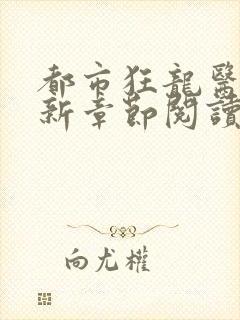 都市狂龍醫
新章節閱讀
向尤權